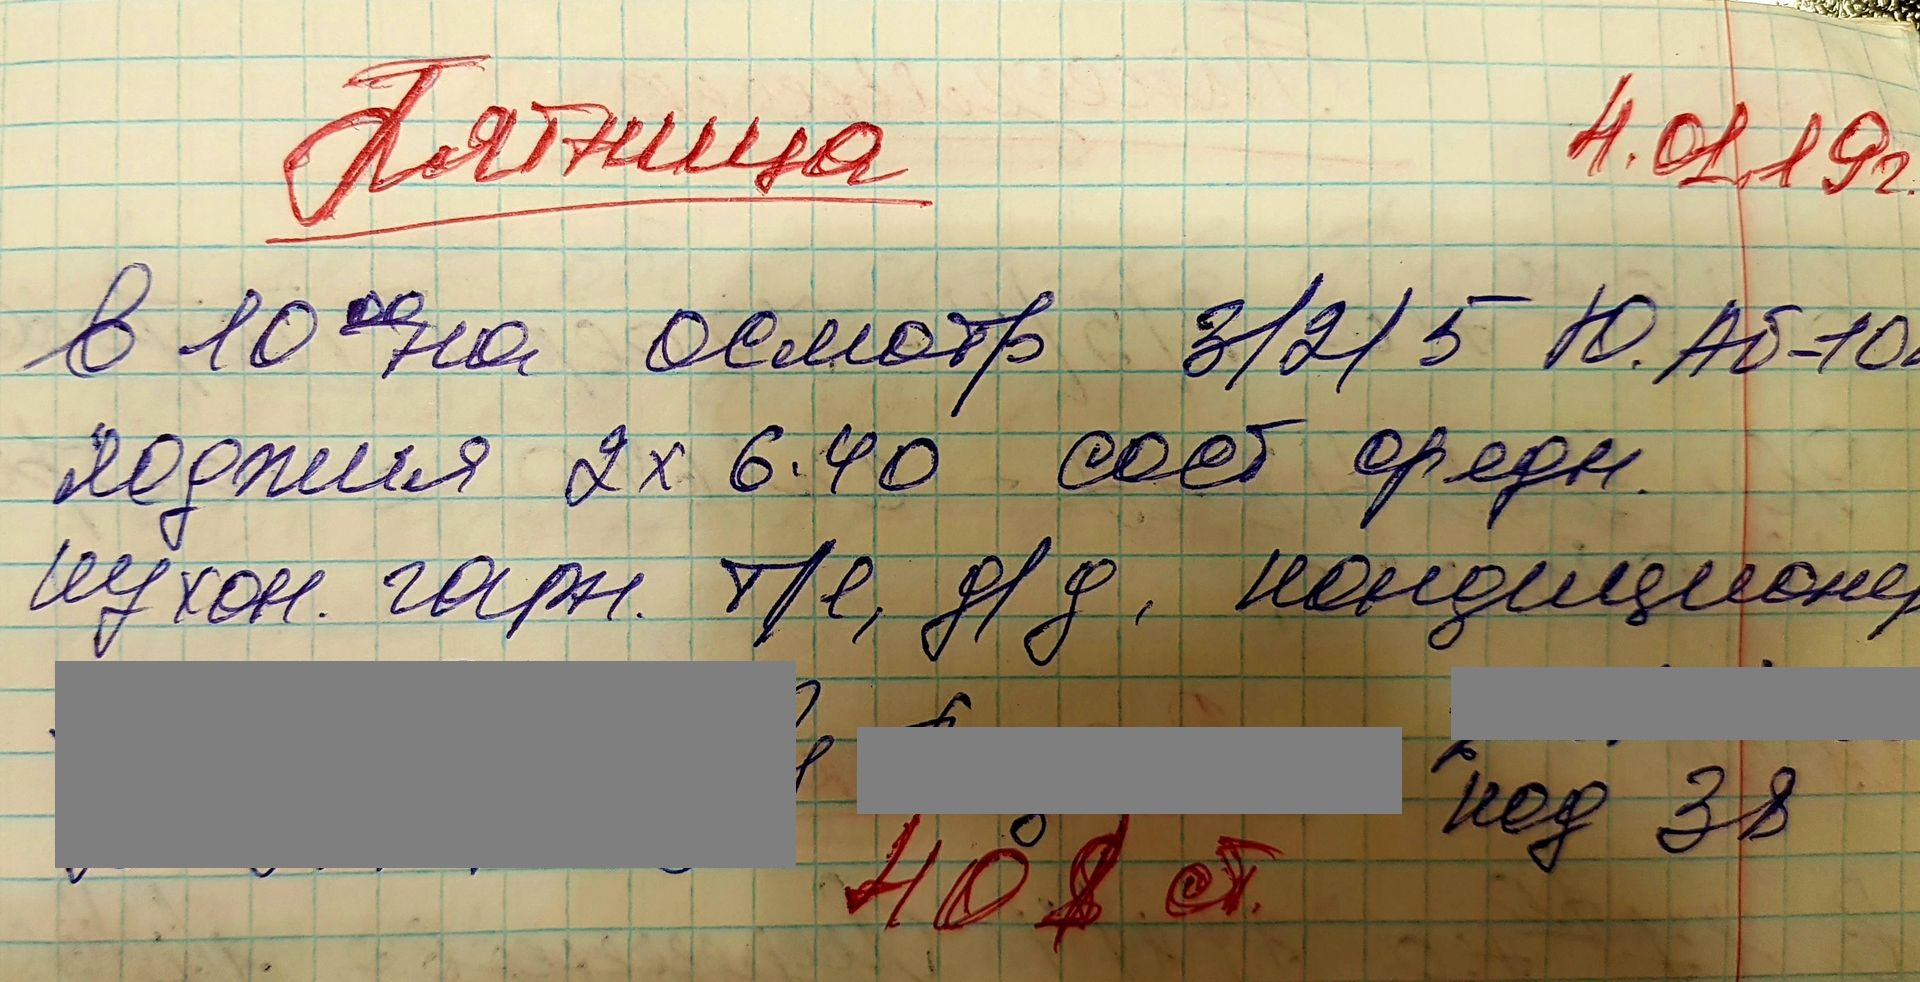 Пятница 4.01.19г.
в 10 00 на осмотр 3/2/5 Ю.Аб-10
лоджия 2х 6.40 сост средн.
кухон. гарн. т/е, д/д, кондиционер
код 38
40$ ст.